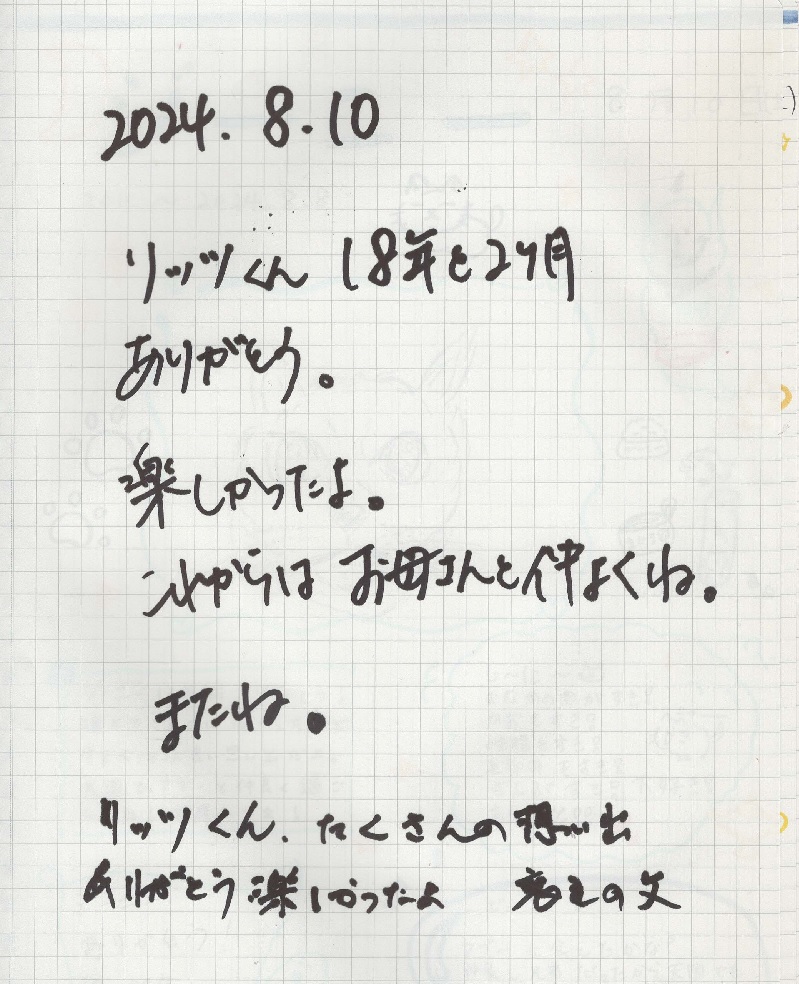 2024.8.10
リッツくん 18年と2ヶ月
ありがとう。
楽しかったよ。
これからは お母さんと仲よくね。
またね。
リッツくん、たくさんの思い出
ありがとう 楽しかったよ の父